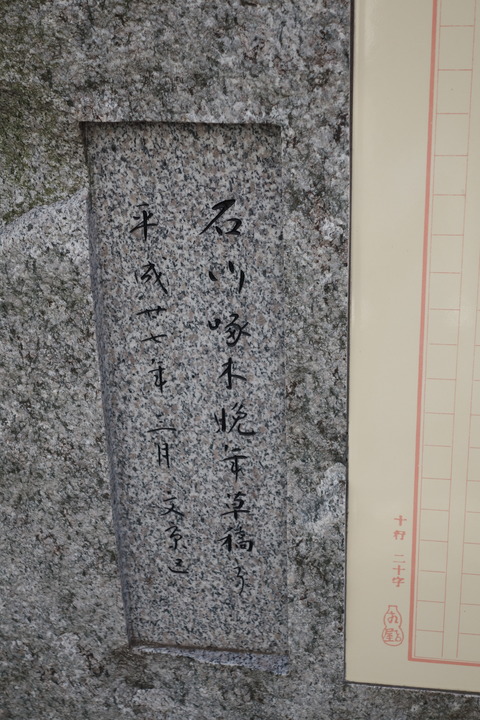 石川啄木晩年草稿より
平成廿七年三月 文京区
十行 二十字